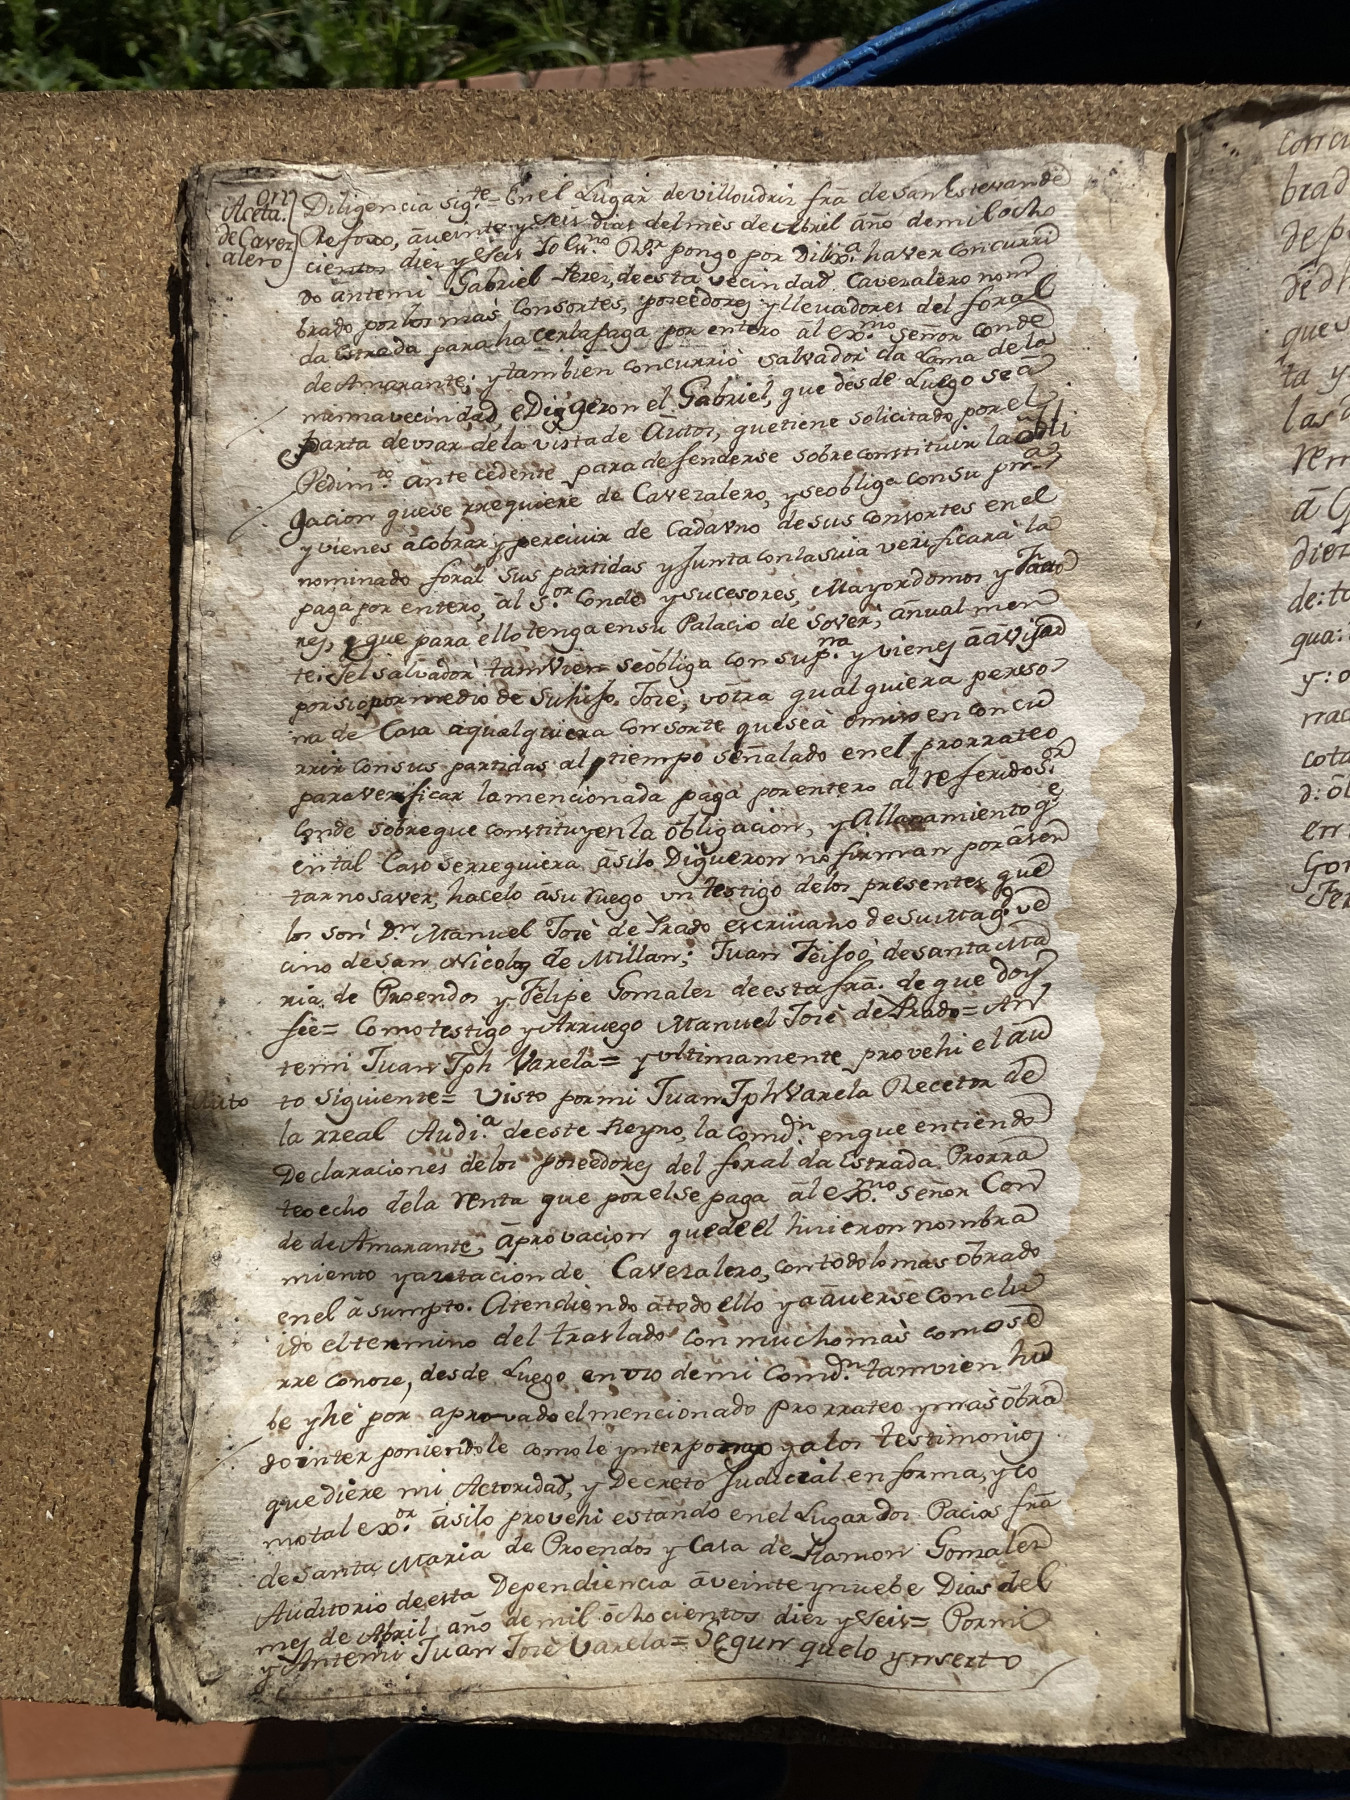 Aceta.on
de Cavez
alero
Diligencia sig.te = En el Lugar de Villoudriz fra. de San Estevan de
Refoxo, à veinte y seis dias del mes de Abril año de mil ocho
cientos diez y seis Yo Es.no R.or pongo por Dilix.a haver concurri
do ante mi Gabriel Perez, de esta vecindad Cavezalero nom
brado por los más consortes, poseèdores y llevadores del foral
da Estrada para hacer la paga por entero àl ex.mo Señor Conde
de Amarante; y tambien concurriò Salvador da Lama de la
misma vecindad, e Digeron el Gabriel, que desde Luego se a
parta de usar de la vista de Autos, que tiene solicitado por el
Pedim.to ante cedente para defenderse sobre constituir la obli
gacion que se rrequiere de Cavezalero, y se obliga con su p.na
y vienes à cobrar y percivir de Cada uno de sus consortes en el
nominado foral sus partidas y junta con la suia verificarà la
paga por entero, àl S.or Conde y sucesores, Mayordomos y Facto
res, que para ello tenga en su Palacio de Sover, añual men
te: Y el Salvador tamvien se òbliga con su p.na y vienes à àvisar
por si o por medio de su hijo Josè, u òtra qualquiera perso
na de Casa a qualquiera consorte que seà omiso en concu
rrir con sus partidas al tiempo señalado en el prorrateo
para verificar la mencionada paga por entero al referido S.or
Conde sobre que constituyen la òbligacion, y Allanamiento q.e
en tal Caso se rrequiera àsi lo Digueron no firman por àsen
tar no saver, hacelo a su ruego un testigo de los presentes que
los son D.n Manuel Josè de Prado escrivano de su Mag.d ve
cino de San Nicolas de Millan; Juan Feijoò de Santa Ma
ria de Proendos y Felipe Gomalez de esta fra. de que doy
feè = Como testigo y Arruego Manuel Josè de Prado = An
te mi Juan Jph Varela = y ultimamente provehi el àu
Auto
to siguiente = Visto por mi Juan Jph Varela Recetor de
la rreal Audi.a de este Reyno, la Com.on en que entiendo
Declaraciones de los poseedores del foral da Estrada Prorra
teo echo de la renta que por el se paga àl ex.mo Señor Con
de de Amarante, àprovacion que de el hicieron nombra
miento y azetacion de Cavezalero, con todo lo mas òbrado
en el àsumpto. Atendiendo àtodo ello y a àverse conclu
ido el termino del traslado con mucho màs como se
rre conoze, desde Luego en uso de mi Com.on tamvien hu
be y hè por aprovado el mencionado prorrateo y màs òbra
do inter poniendole como le ynterpongo y a los testimonios
que diere mi Actoridad, y Decreto Judicial en forma, y co
mo tal ex.or àsi lo provehi estando en el Lugar dos Pacios fra.
de Santa Maria de Proendos y Casa de Ramon Gomalez
Auditorio de esta Dependiencia à veinte y nuebe Dias del
mes de Abril año de mil òchocientos diez y seis = Por mi
y Ante mi Juan Josè Varela = Segun que lo ynserto